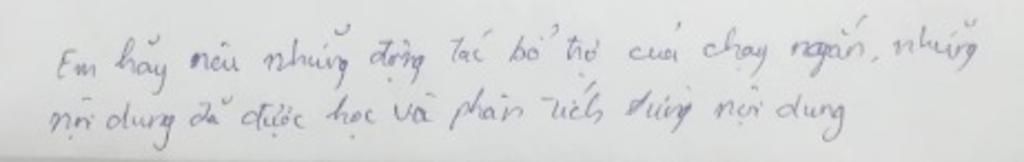 Em hãy nêu những động tác bổ trợ của chạy ngắn, những
nội dung đã được học và phân tích từng nội dung